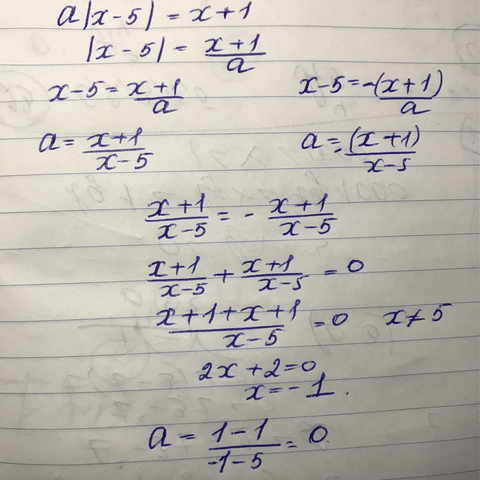 a|x-5| = x+1
|x-5| = (x+1)/a
x-5 = (x+1)/a    x-5 = -(x+1)/a
a = (x+1)/(x-5)    a = -(x+1)/(x-5)
(x+1)/(x-5) = - (x+1)/(x-5)
(x+1)/(x-5) + (x+1)/(x-5) = 0
(x+1+x+1)/(x-5) = 0    x≠5
2x+2=0
x=-1.
a = (1-1)/(-1-5) = 0